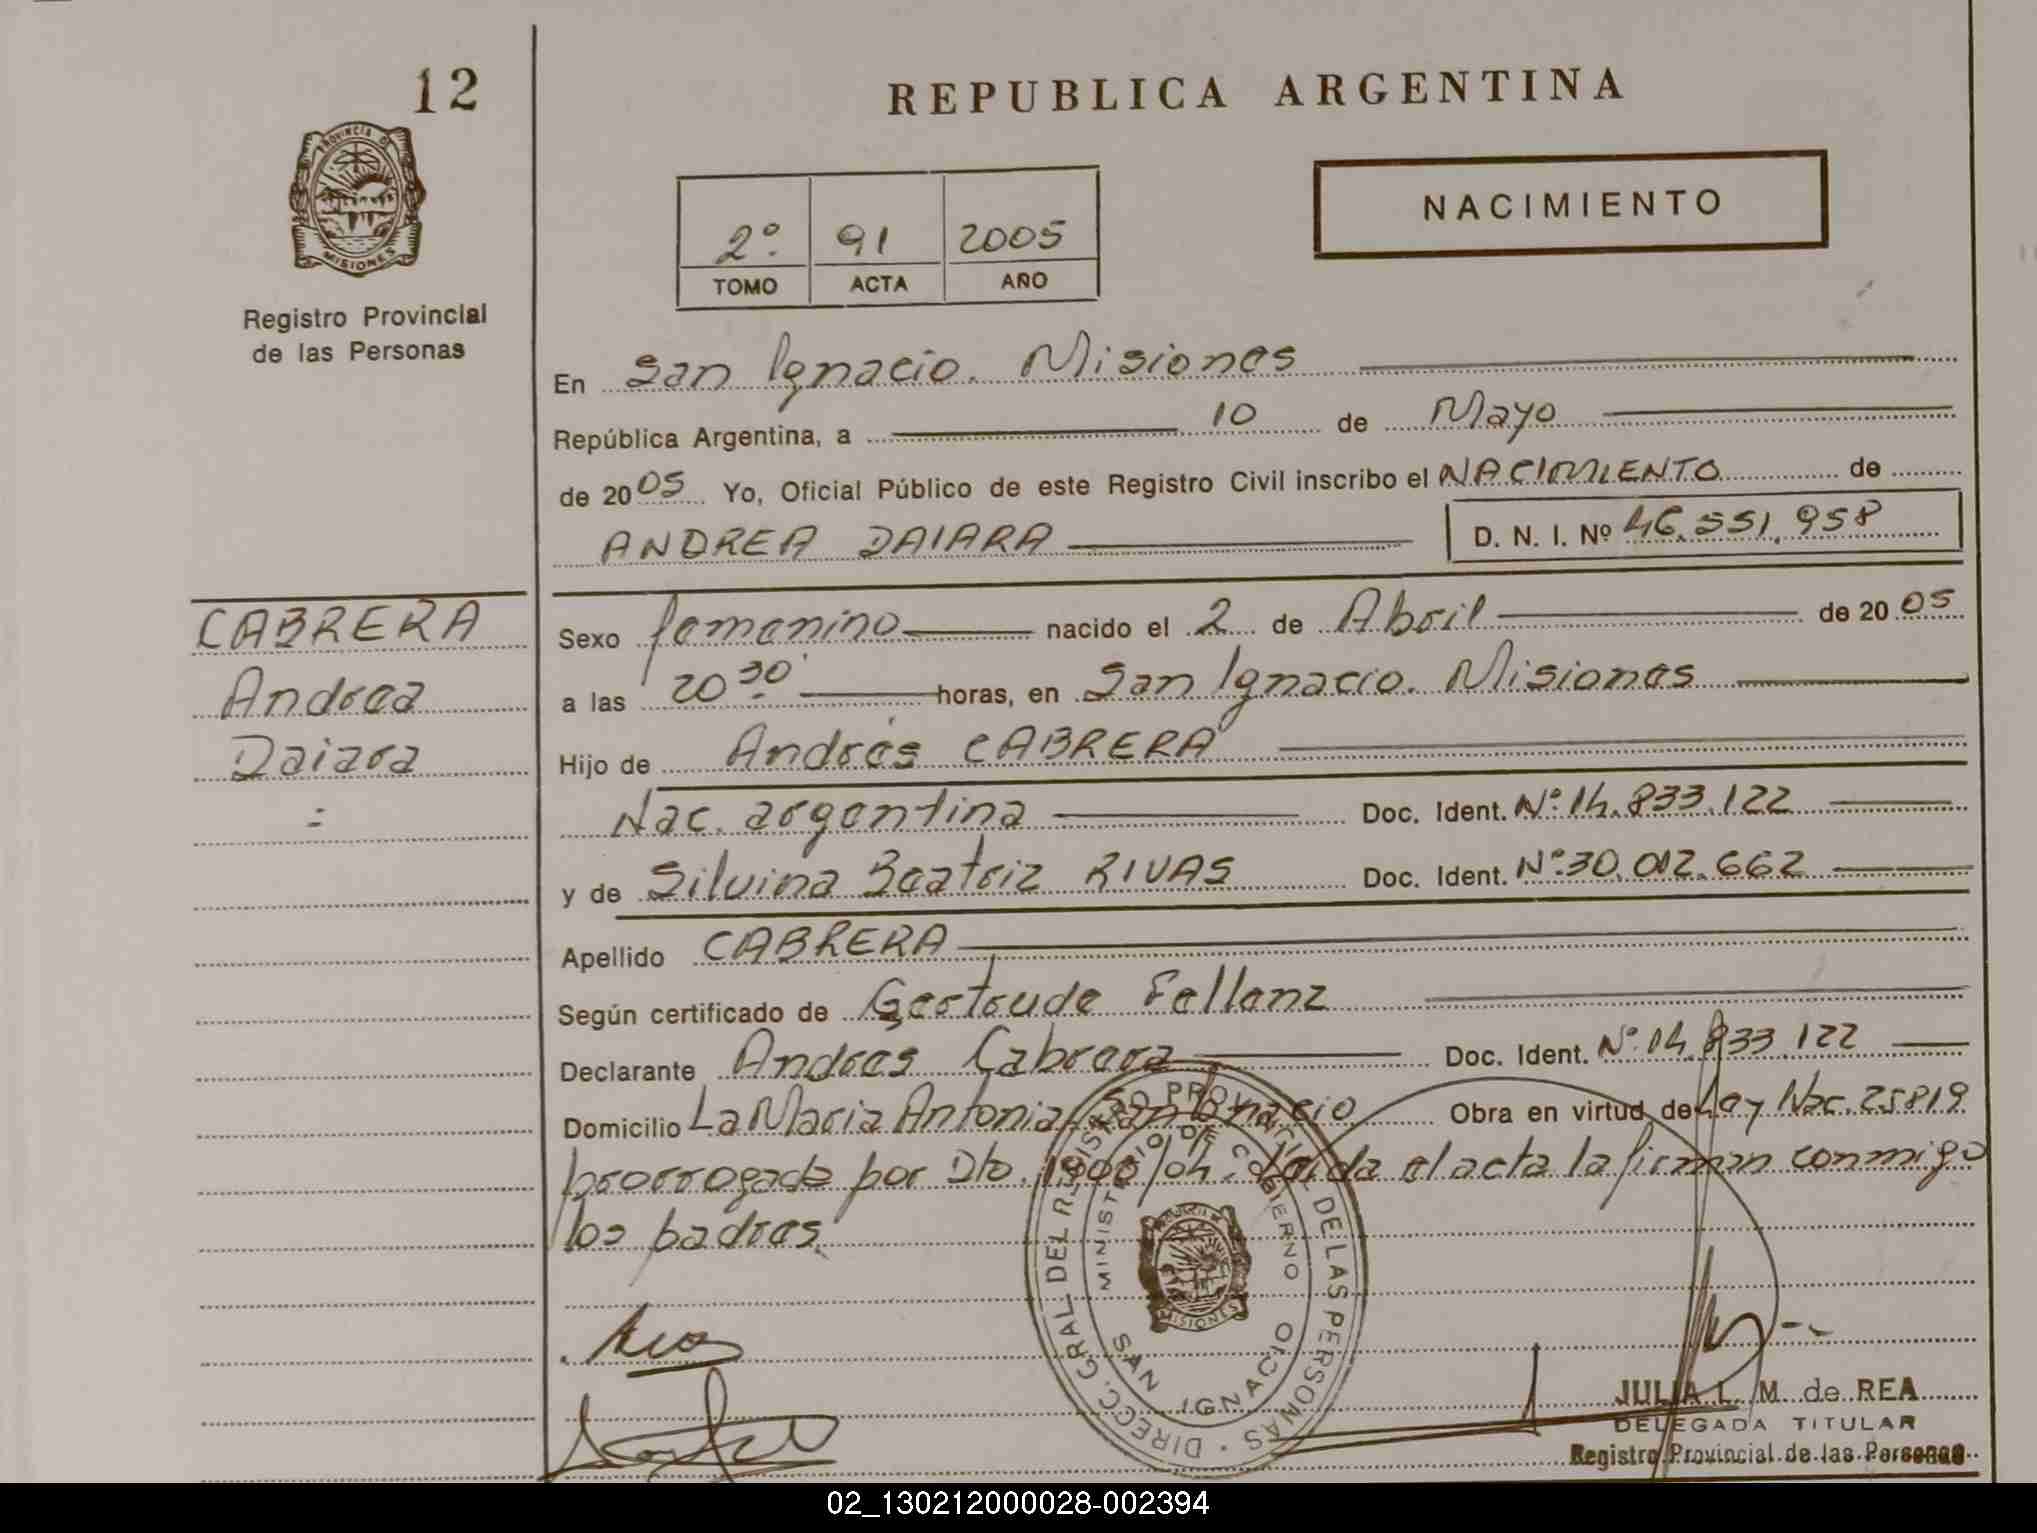 12
PROVINCIA DE
MISIONES
Registro Provincial
de las Personas
REPUBLICA ARGENTINA
2º 91 2005
TOMO ACTA AÑO
NACIMIENTO
En San Ignacio. Misiones
República Argentina, a 10 de Mayo
de 2005 Yo, Oficial Público de este Registro Civil inscribo el NACIMIENTO de
ANDREA DAIARA D. N. I. Nº 46.551.958
CABRERA
Andrea
Daiara
Sexo femenino nacido el 2 de Abril de 2005
a las 20 30 horas, en San Ignacio. Misiones
Hijo de Andrés CABRERA
Nac. argentina Doc. Ident. Nº 14.833.122
y de Silvina Beatriz RIVAS Doc. Ident. Nº 30.012.662
Apellido CABRERA
Según certificado de Gertrude Fellenz
Declarante Andres Cabrera Doc. Ident. Nº 14.833.122
Domicilio La Maria Antonia San Ignacio Obra en virtud de Ley Nac. 25819
prorrogada por Dto. 1900/04. Leida el acta la firman conmigo
los padres.
DIRECC. GRAL DEL REGISTRO PROVINCIAL DE LAS PERSONAS
MINISTERIO DE GOBIERNO
MISIONES
SAN IGNACIO
JULIA L. M. de REA
DELEGADA TITULAR
Registro Provincial de las Personas
02_130212000028-002394